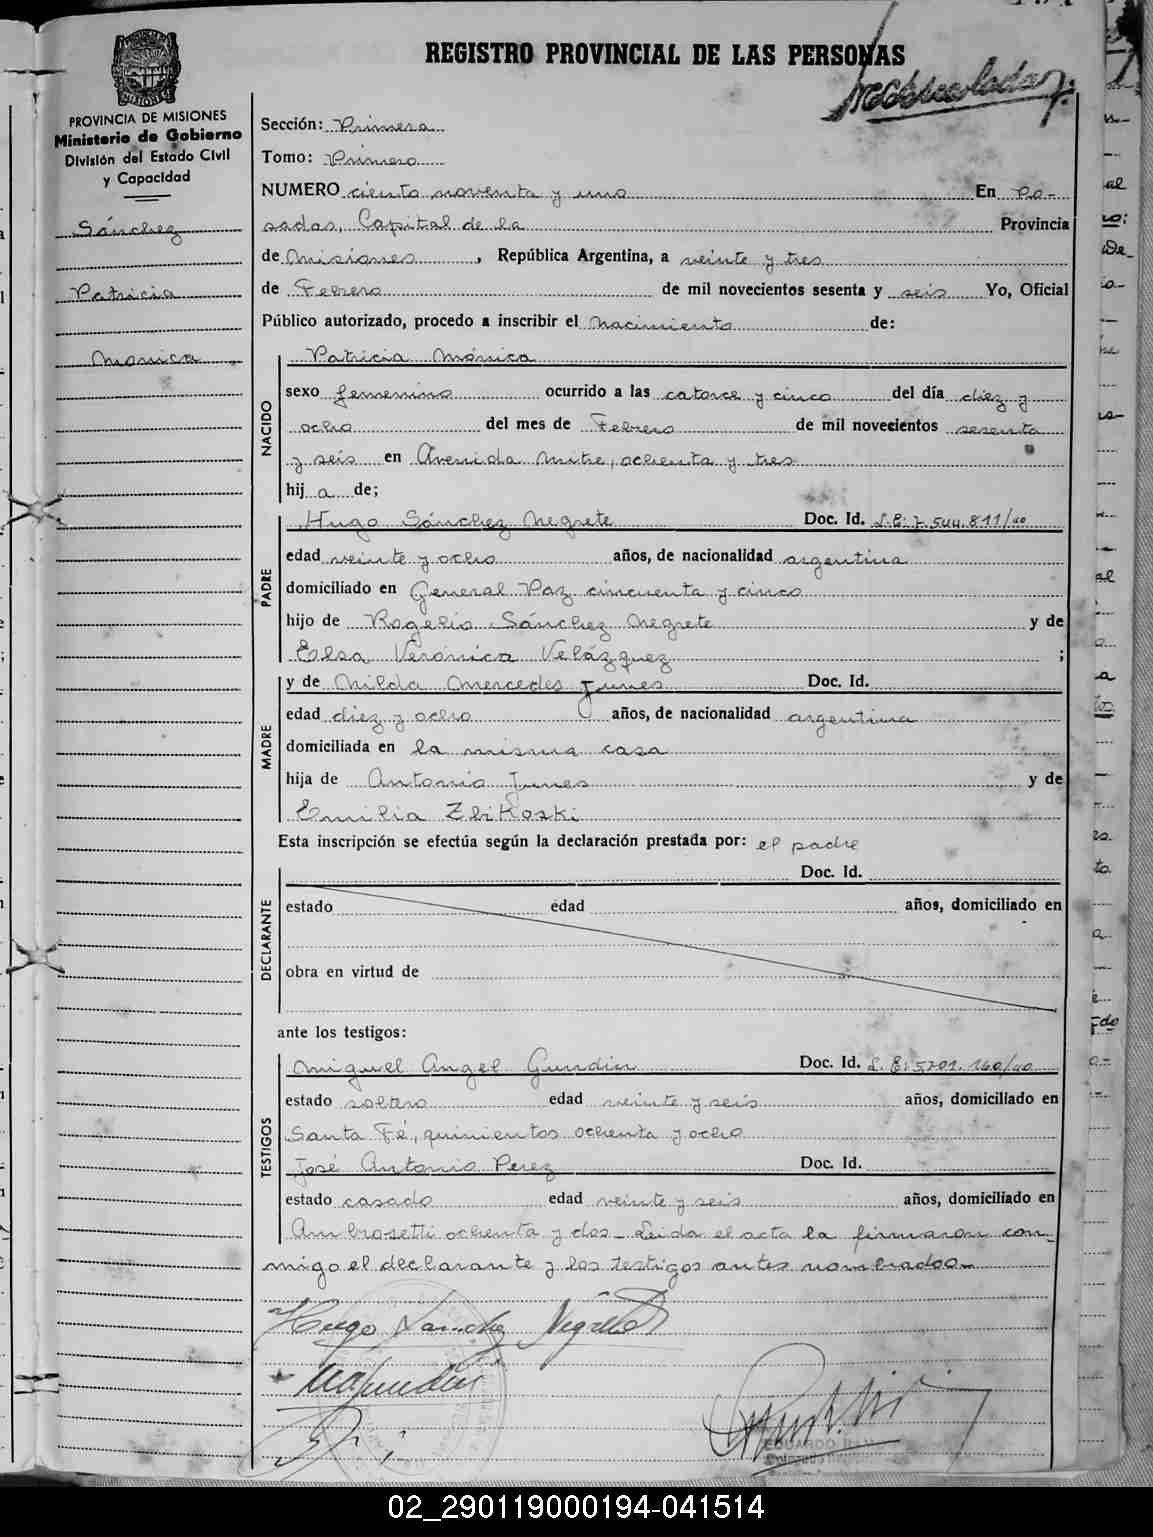 REGISTRO PROVINCIAL DE LAS PERSONAS
PROVINCIA DE MISIONES
Ministerio de Gobierno
División del Estado Civil
y Capacidad
Sánchez
Patricia
Monica
Sección: Primera
Tomo: Primero
NUMERO ciento noventa y uno En Po-
sadas, Capital de la Provincia
de Misiones, República Argentina, a veinte y tres
de Febrero de mil novecientos sesenta y seis Yo, Oficial
Público autorizado, procedo a inscribir el nacimiento de:
NACIDO
Patricia Mónica
sexo femenino ocurrido a las catorce y cinco del día diez y
ocho del mes de Febrero de mil novecientos sesenta
y seis en Avenida Mitre, ochenta y tres
hij a de;
PADRE
Hugo Sánchez Negrete Doc. Id. L.E: 7.544.811/40
edad veinte y ocho años, de nacionalidad argentina
domiciliado en General Paz cincuenta y cinco
hijo de Rogelio Sánchez Negrete y de
Elsa Verónica Velázquez ;
MADRE
y de Nilda Mercedes Junes Doc. Id.
edad diez y ocho años, de nacionalidad argentina
domiciliada en la misma casa
hija de Antonio Junes y de
Emilia Zbikoski
Esta inscripción se efectúa según la declaración prestada por: el padre
DECLARANTE
Doc. Id.
estado edad años, domiciliado en
obra en virtud de
ante los testigos:
TESTIGOS
Miguel Angel Gundin Doc. Id. L.E: 5701.160/40
estado soltero edad veinte y seis años, domiciliado en
Santa Fé, quinientos ochenta y ocho
José Antonio Perez Doc. Id.
estado casado edad veinte y seis años, domiciliado en
Ambrosetti ochenta y dos_ Leida el acta la firmaron con-
migo el declarante y los testigos antes nombrados_
Hugo Sanchez Negrete
EDUARDO
02_290119000194-041514